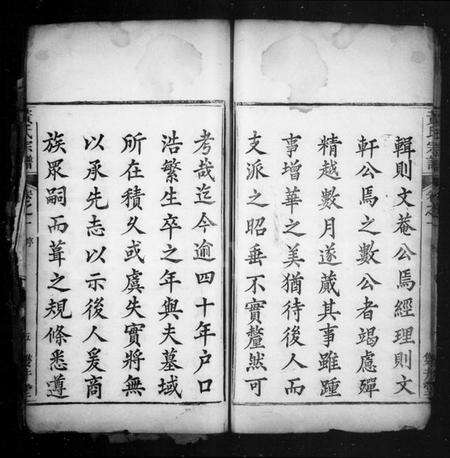 輯則文菴公焉經理則文
軒公焉之數公者竭慮殫
精越數月遂蕆其事雖踵
事增華之美猶待後人而
支派之昭垂不實釐然可
考哉迄今逾四十年户口
浩繁生卒之年與夫墓域
所在積久或虞失實將無
以承先志以示後人爰商
族眾嗣而葺之規條悉遵